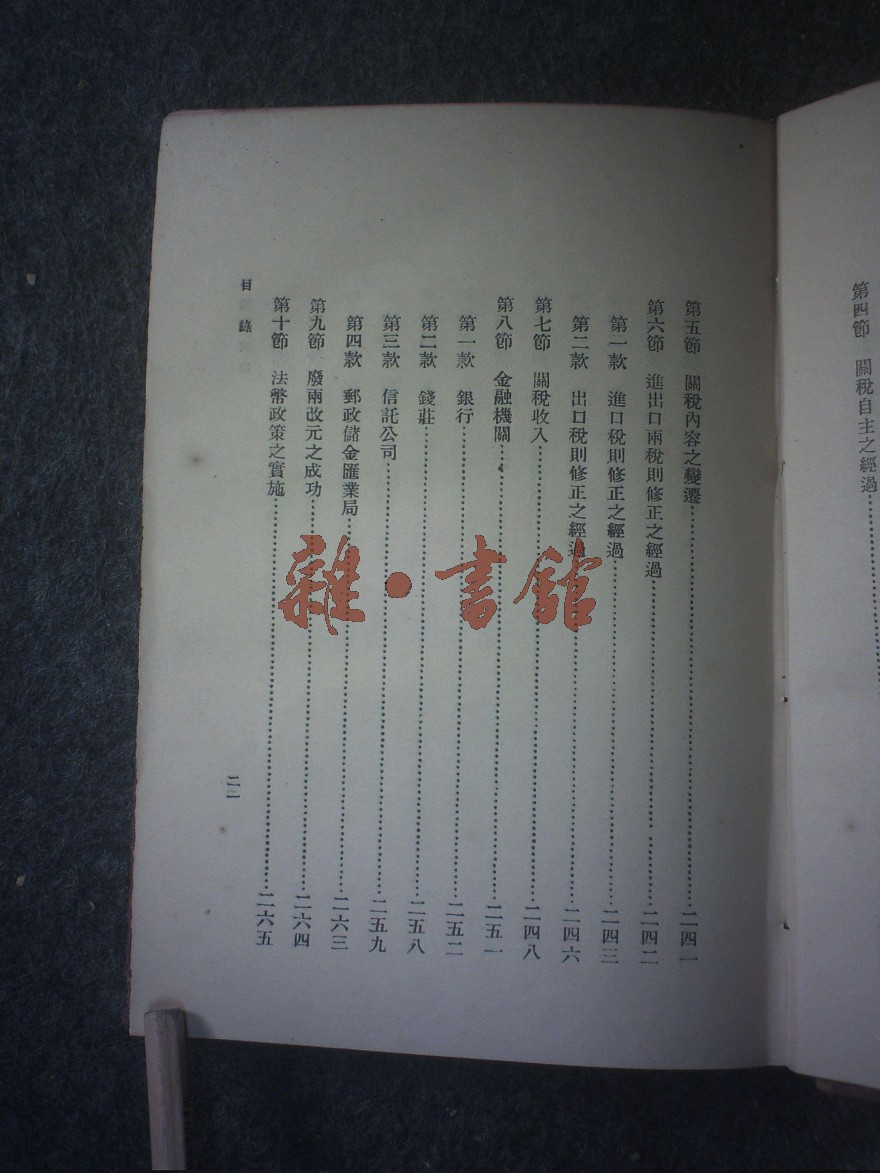 第四節 關稅自主之經過
第五節 關稅內容之變遷 二四一
第六節 進出口兩稅則修正之經過 二四二
第一款 進口稅則修正之經過 二四三
第二款 出口稅則修正之經過 二四六
第七節 關稅收入 二四八
第八節 金融機關 二五一
第一款 銀行 二五二
第二款 錢莊 二五八
第三款 信託公司 二五九
第四款 郵政儲金匯業局 二六三
第九節 廢兩改元之成功 二六四
第十節 法幣政策之實施 二六五
目錄
二一
雜·書館